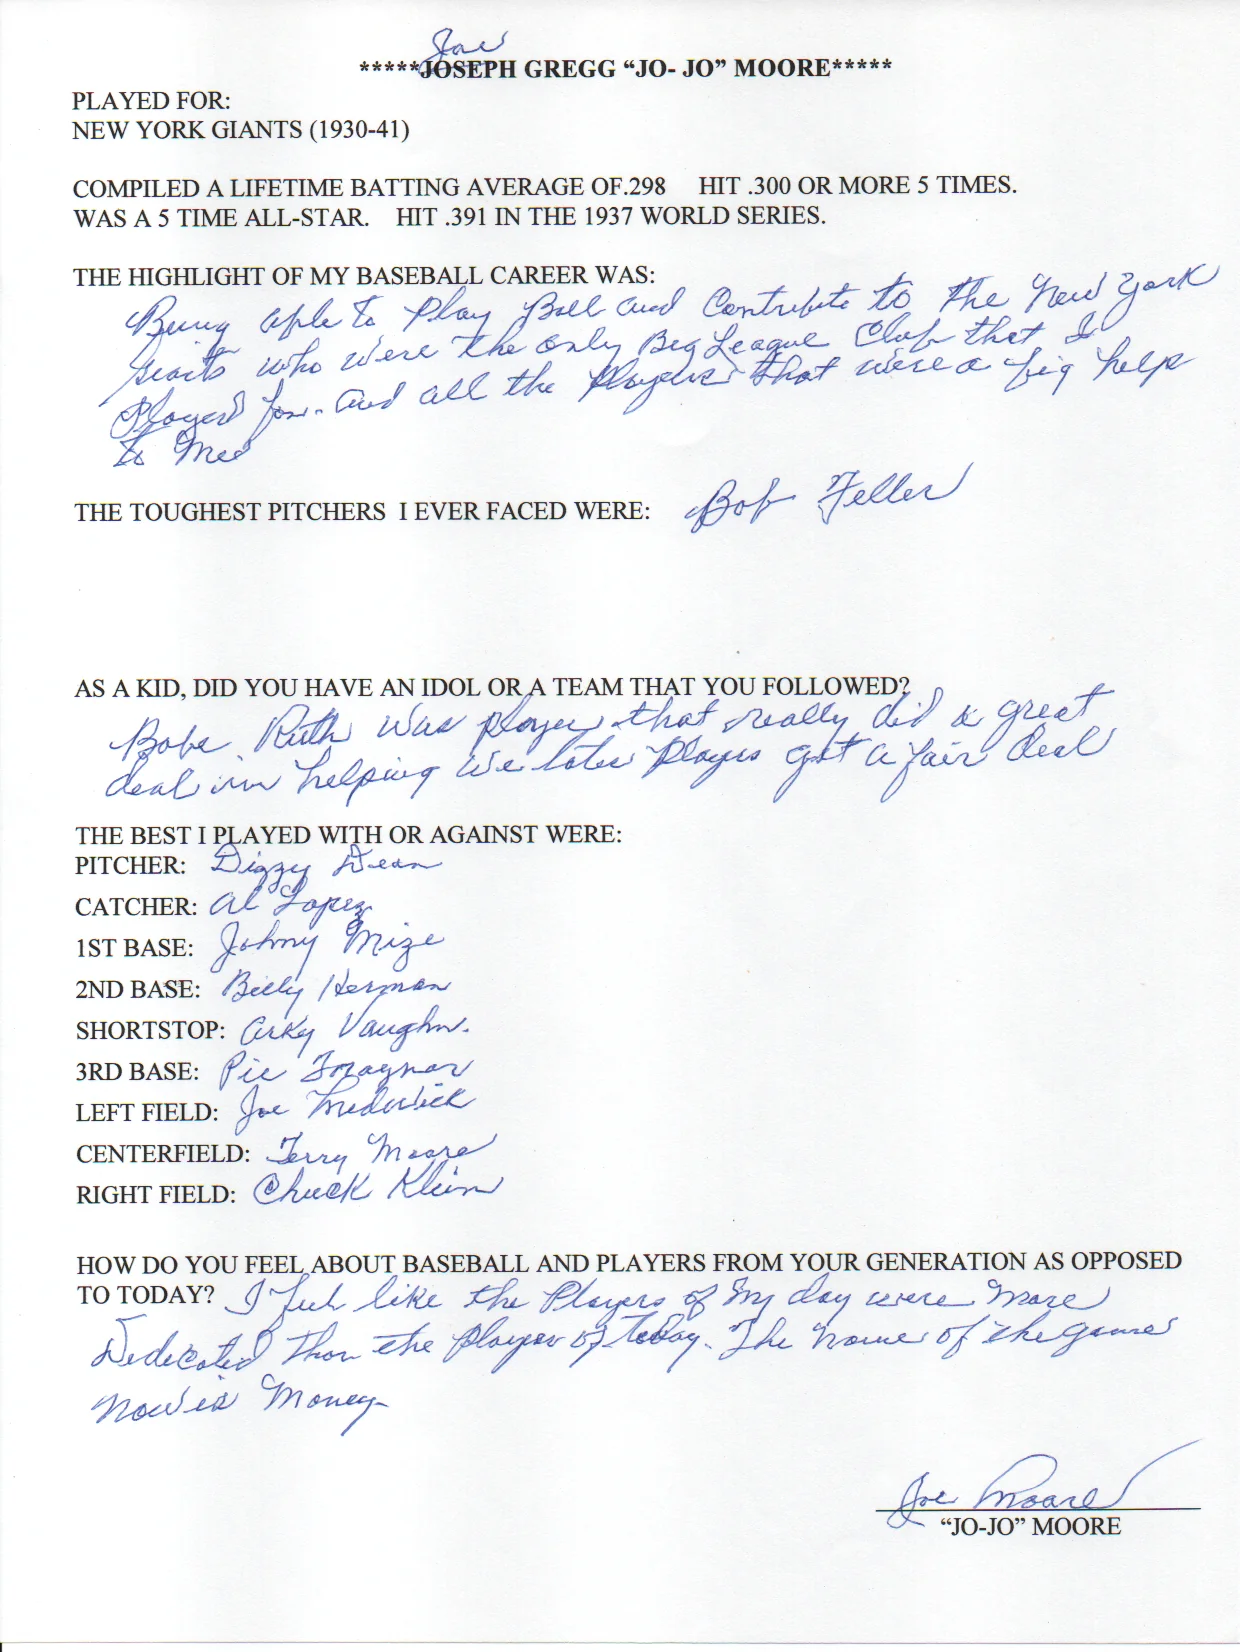 Joe
*****JOSEPH GREGG “JO- JO” MOORE*****
PLAYED FOR:
NEW YORK GIANTS (1930-41)
COMPILED A LIFETIME BATTING AVERAGE OF.298 HIT .300 OR MORE 5 TIMES.
WAS A 5 TIME ALL-STAR. HIT .391 IN THE 1937 WORLD SERIES.
THE HIGHLIGHT OF MY BASEBALL CAREER WAS:
Being able to Play Ball and Contribute to the New York
Giants who were the only Big League Club that I
Played for. And all the Players that were a big help
to Me
THE TOUGHEST PITCHERS I EVER FACED WERE: Bob Feller
AS A KID, DID YOU HAVE AN IDOL OR A TEAM THAT YOU FOLLOWED?
Babe Ruth was player that really did a great
deal in helping we later Players get a fair deal
THE BEST I PLAYED WITH OR AGAINST WERE:
PITCHER: Dizzy Dean
CATCHER: Al Lopez
1ST BASE: Johny Mize
2ND BASE: Billy Herman
SHORTSTOP: Arky Vaughn.
3RD BASE: Pie Traynor
LEFT FIELD: Joe
CENTERFIELD: Terry Moore
RIGHT FIELD: Chuck Klein
HOW DO YOU FEEL ABOUT BASEBALL AND PLAYERS FROM YOUR GENERATION AS OPPOSED
TO TODAY? I feel like the Players of My day were More
Dedicated than the Player of today. The Name of the game
Now is Money
Joe Moore
“JO-JO” MOORE